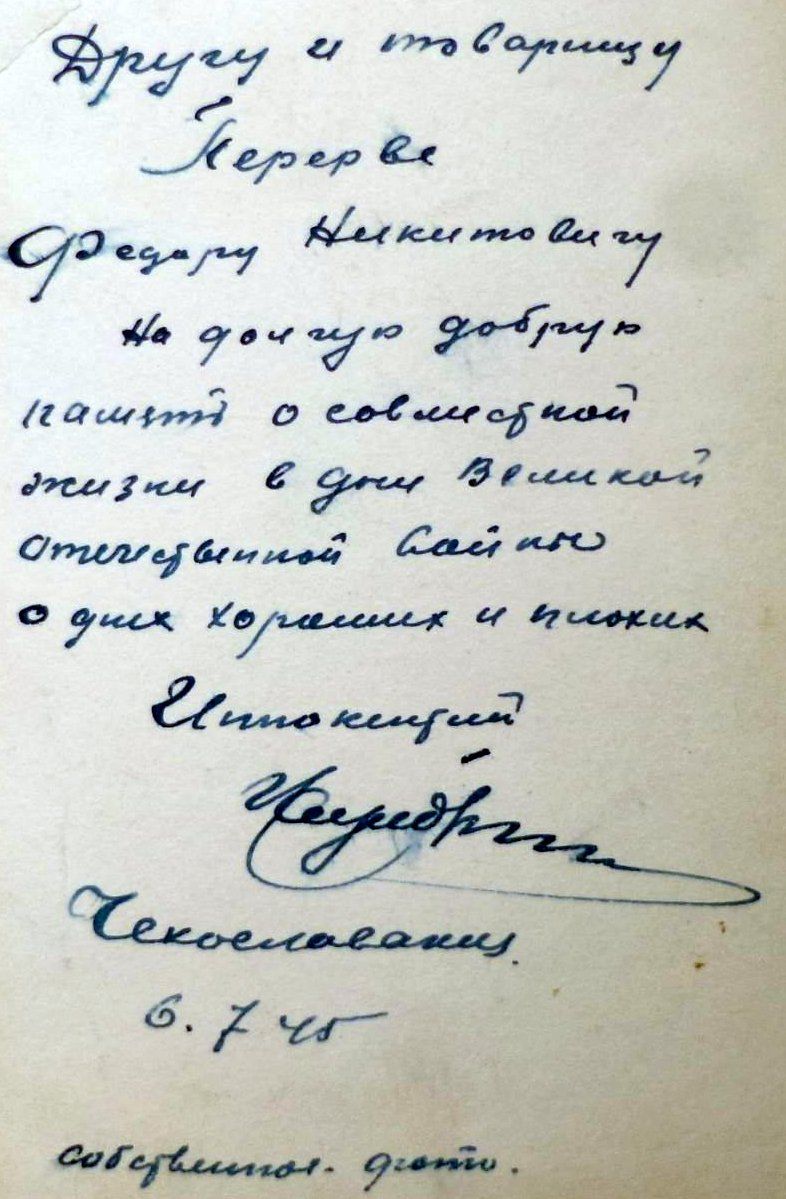 Другу и товарищу
Перерве
Федору Никитовичу
На долгую добрую
память о совместной
жизни в дни Великой
Отечественной Войны
о днях хороших и плохих
Иннокентий
Чехословакия
6.7 45
собственное. фото.